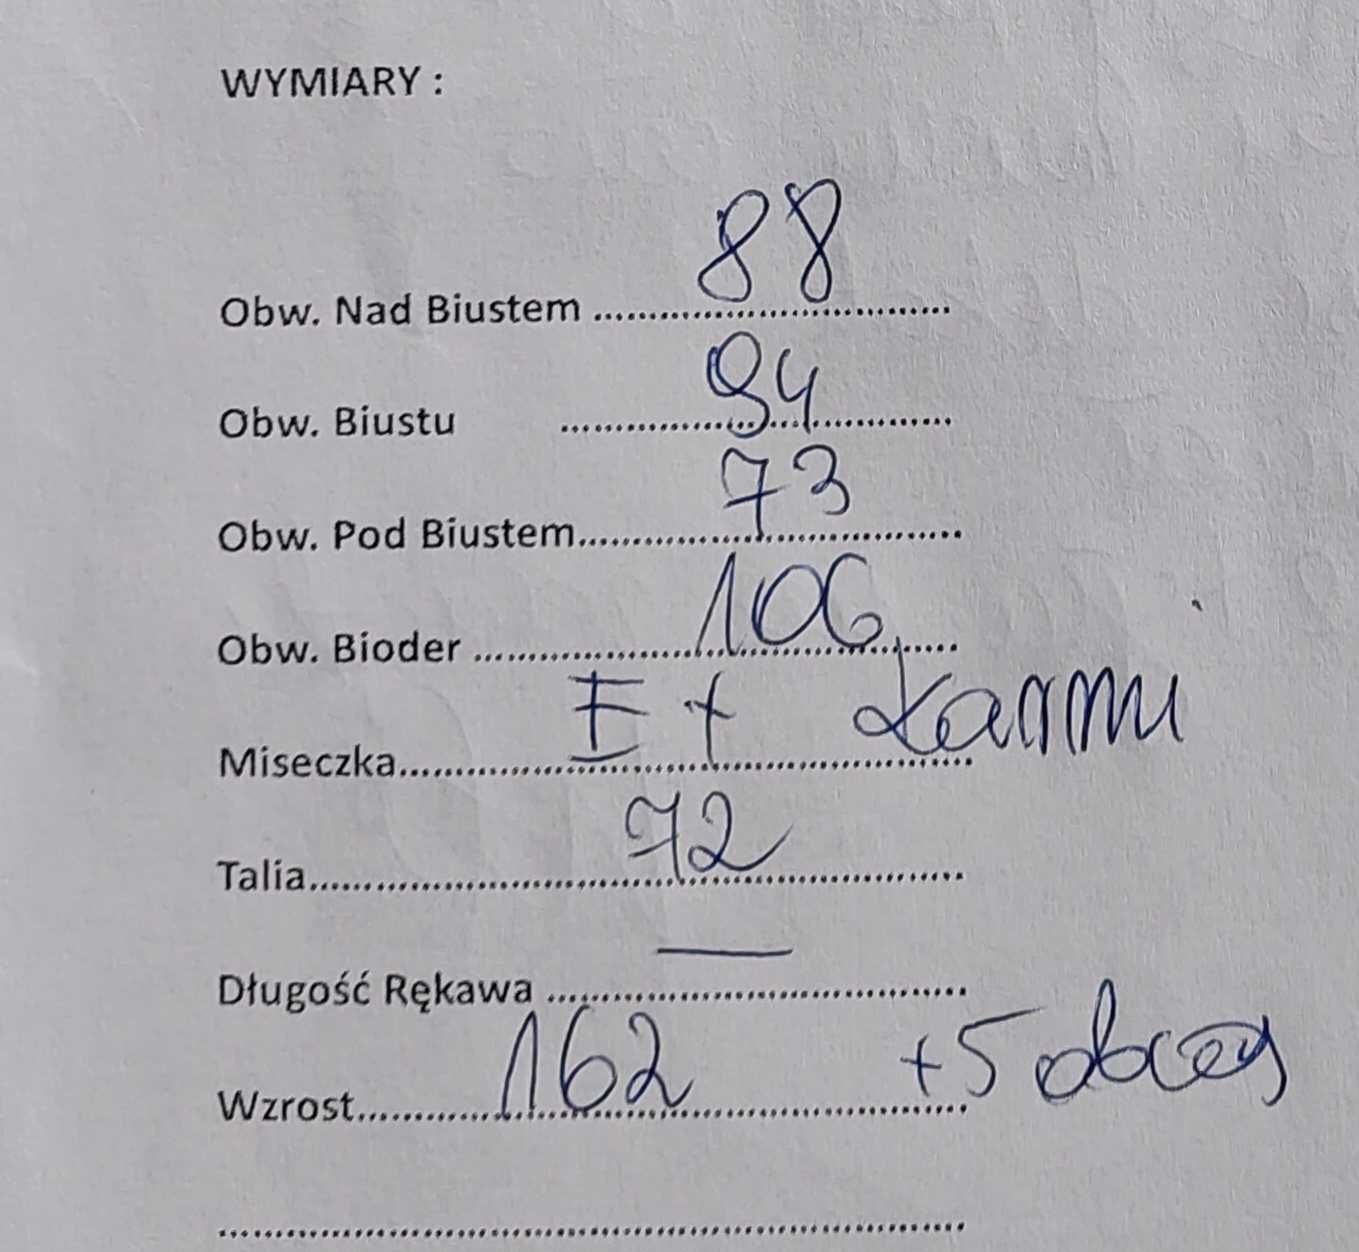 WYMIARY :
Obw. Nad Biustem 88
Obw. Biustu 94
Obw. Pod Biustem 73
Obw. Bioder 106
Miseczka E + karmi
Talia 72
Długość Rękawa —
Wzrost 162 +5 obcas